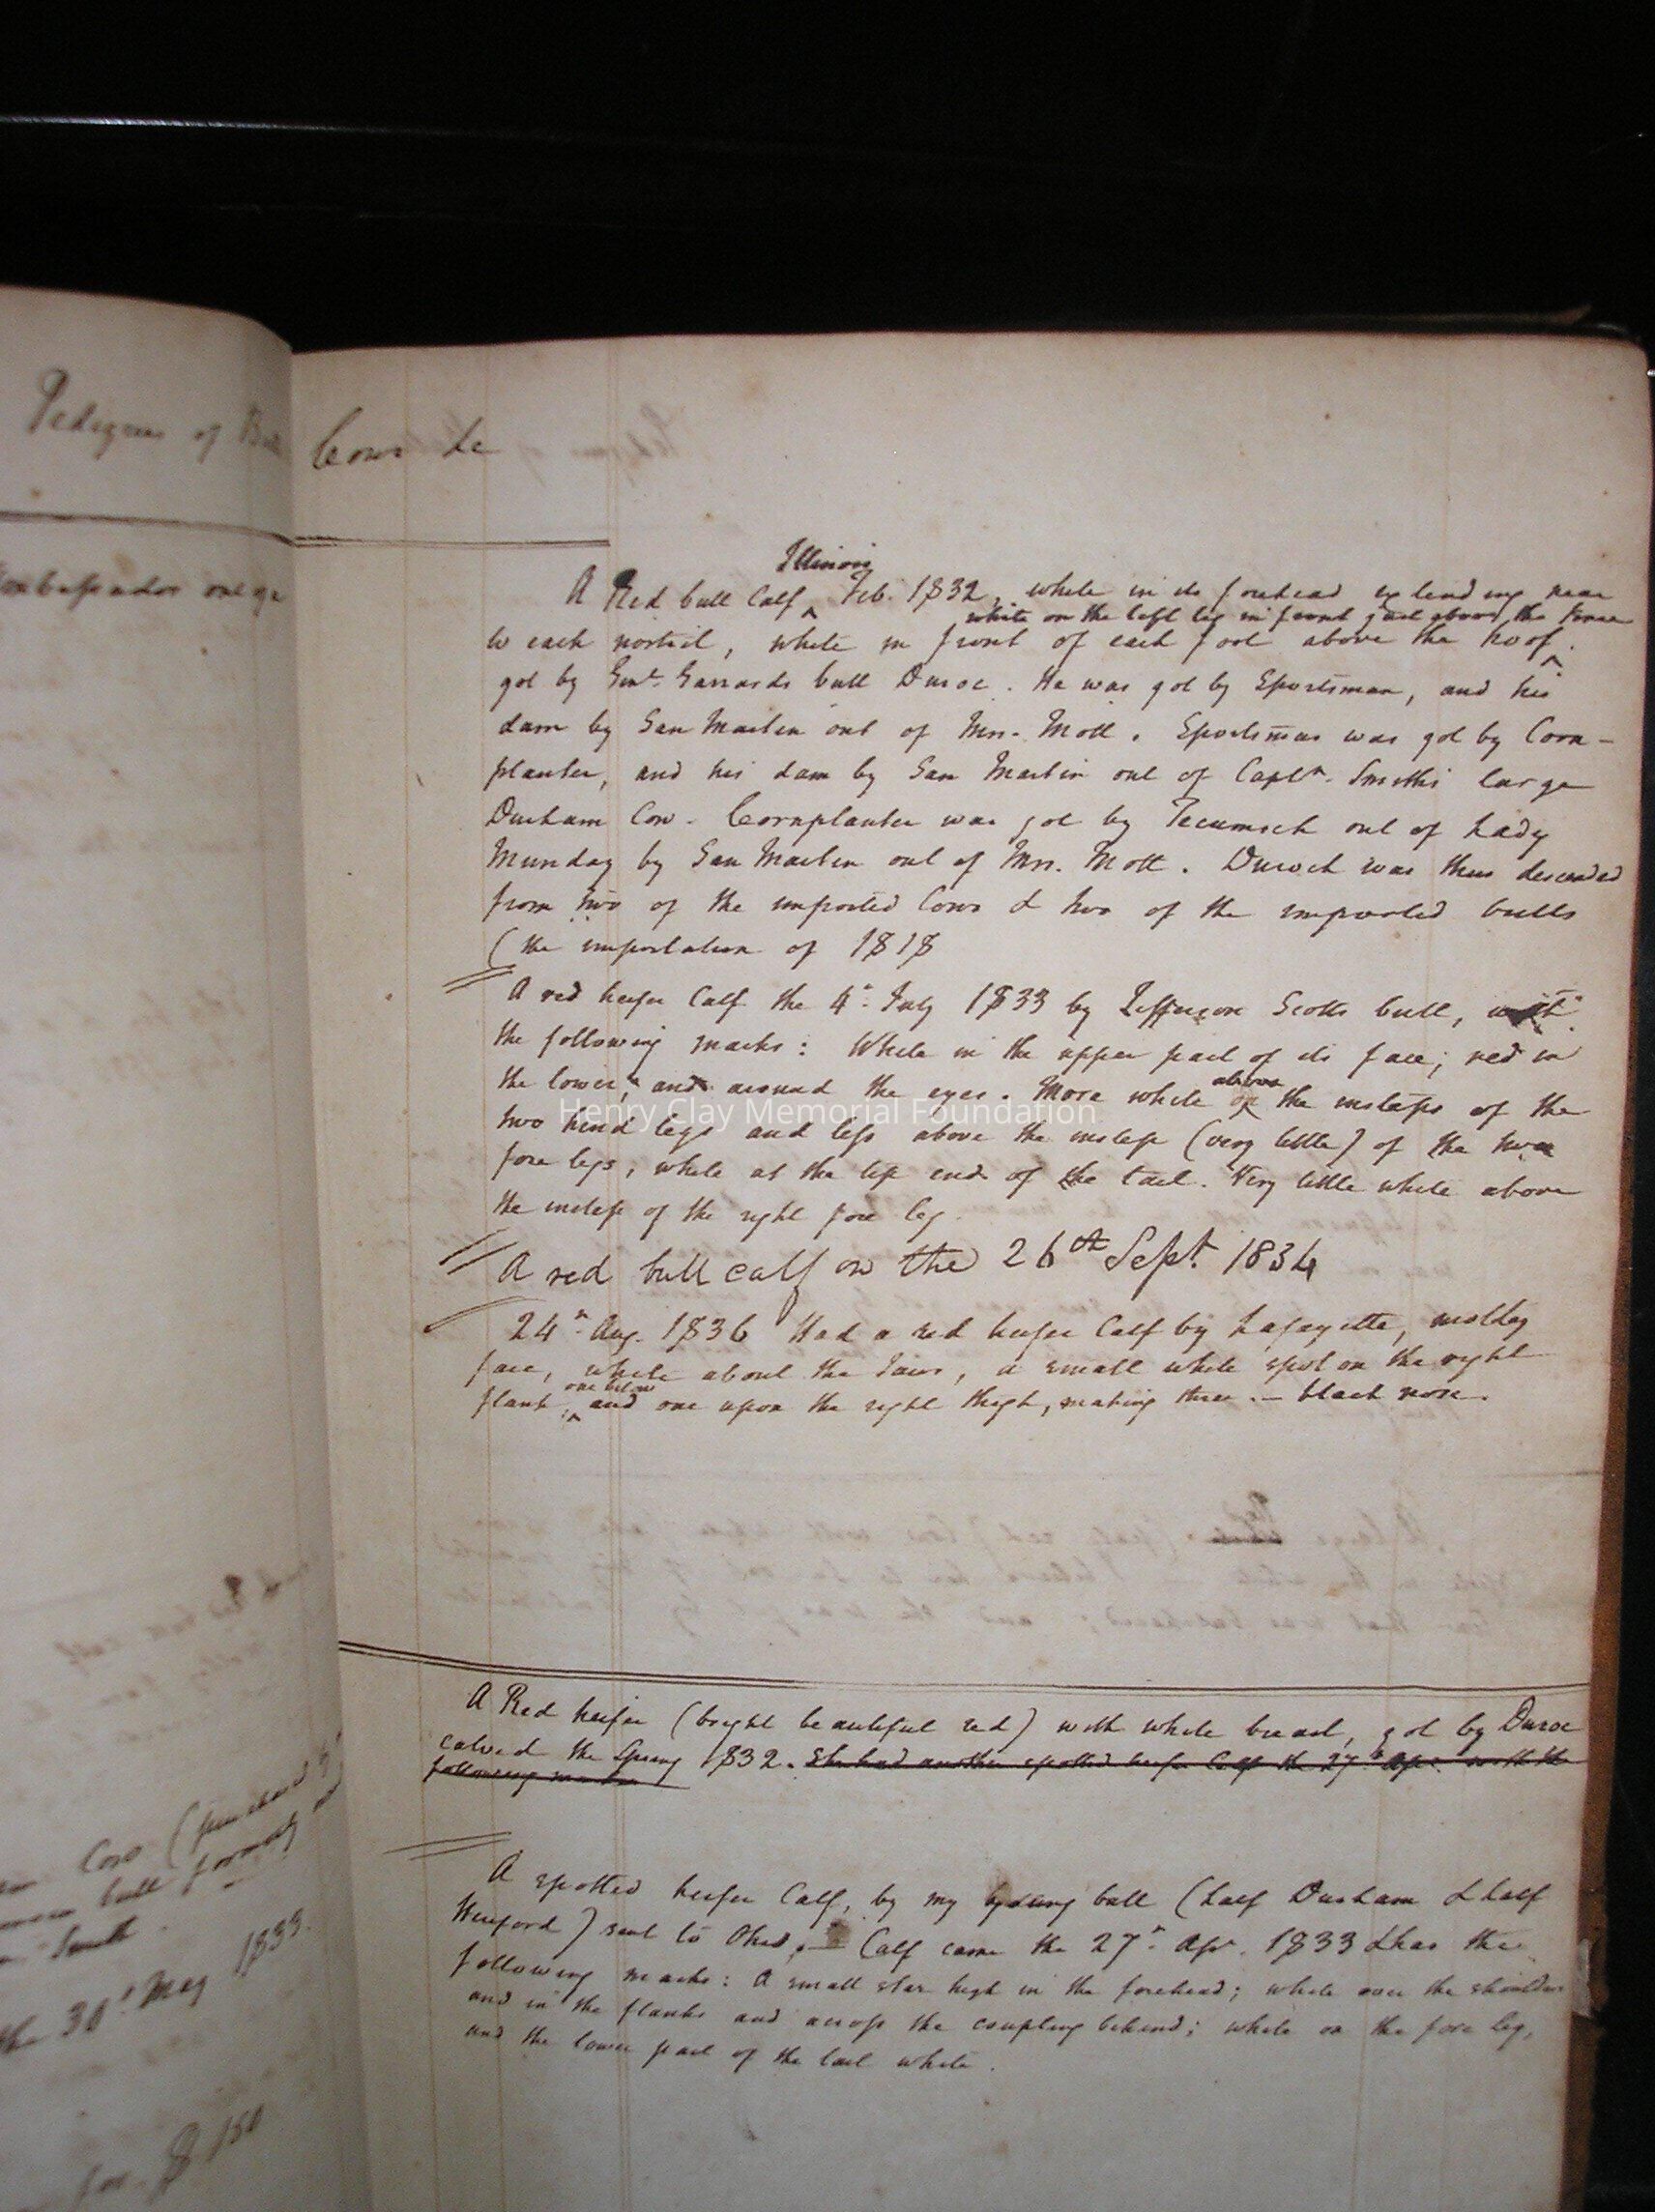 Pedigrees of
Cows &c
Illinois
A Red bull Calf Feb. 1832, white in its forehead extending near
white on the left leg in front just above the
to each nostril, white in front of each foot above the hoof.
got by Genl. Garrards bull Duroc. He was got by Sportsman, and his
dam by San Martin out of Mrs. Mott. Sportsman was got by Corn-
planter, and his dam by San Martin out of Captn. Smiths large
Durham Cow. Cornplanter was got by Tecumseh out of Lady
Munday by San Martin out of Mrs. Mott. Duroch was thus descended
from two of the imported Cows & two of the imported bulls
(the importation of 1818
A red heifer Calf the 4h. July 1833 by Jefferson Scotts bull, with
the following marks: White in the upper part of its face; red in
the lower, and around the eyes. More white above the insteps of the
two hind legs and less above the instep (very little) of the two
fore legs, white at the tip end of the tail. Very little white above
the instep of the right fore leg.
A red bull calf on the 26th Sept. 1834
24h. Aug. 1836 Had a red heifer Calf by Lafayette, molley
face, white about the Jaws, a small white spot on the right
one below
flank, and one upon the right thigh, making three. — black nose.
A Red heifer (bright beautiful red) with white breast, got by Duroc
calved the Spring 1832. She had another spotted heifer Calf the 27h. Apr. with the
following marks
A spotted heifer Calf, by my young bull (half Durham & half
Hereford) sent to Ohio, — Calf came the 27h. Apr. 1833 & has the
following marks: A small star high in the forehead; white over the shoulders
and in the flanks and across the coupling behind; white on the fore leg,
and the lower part of the tail white.
Cow (purchased
bull formerly
Smith
the 30t May 1833.
for $150
Henry Clay Memorial Foundation